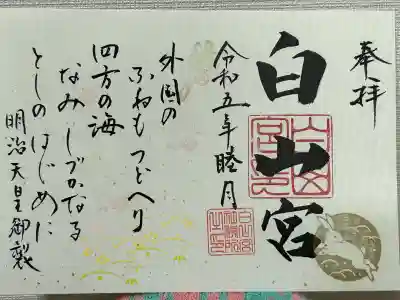 奉拝
白山宮
令和五年睦月
外国の
ふねもつどへり
四方の海
なみしづかなる
としのはじめに
明治天皇御製